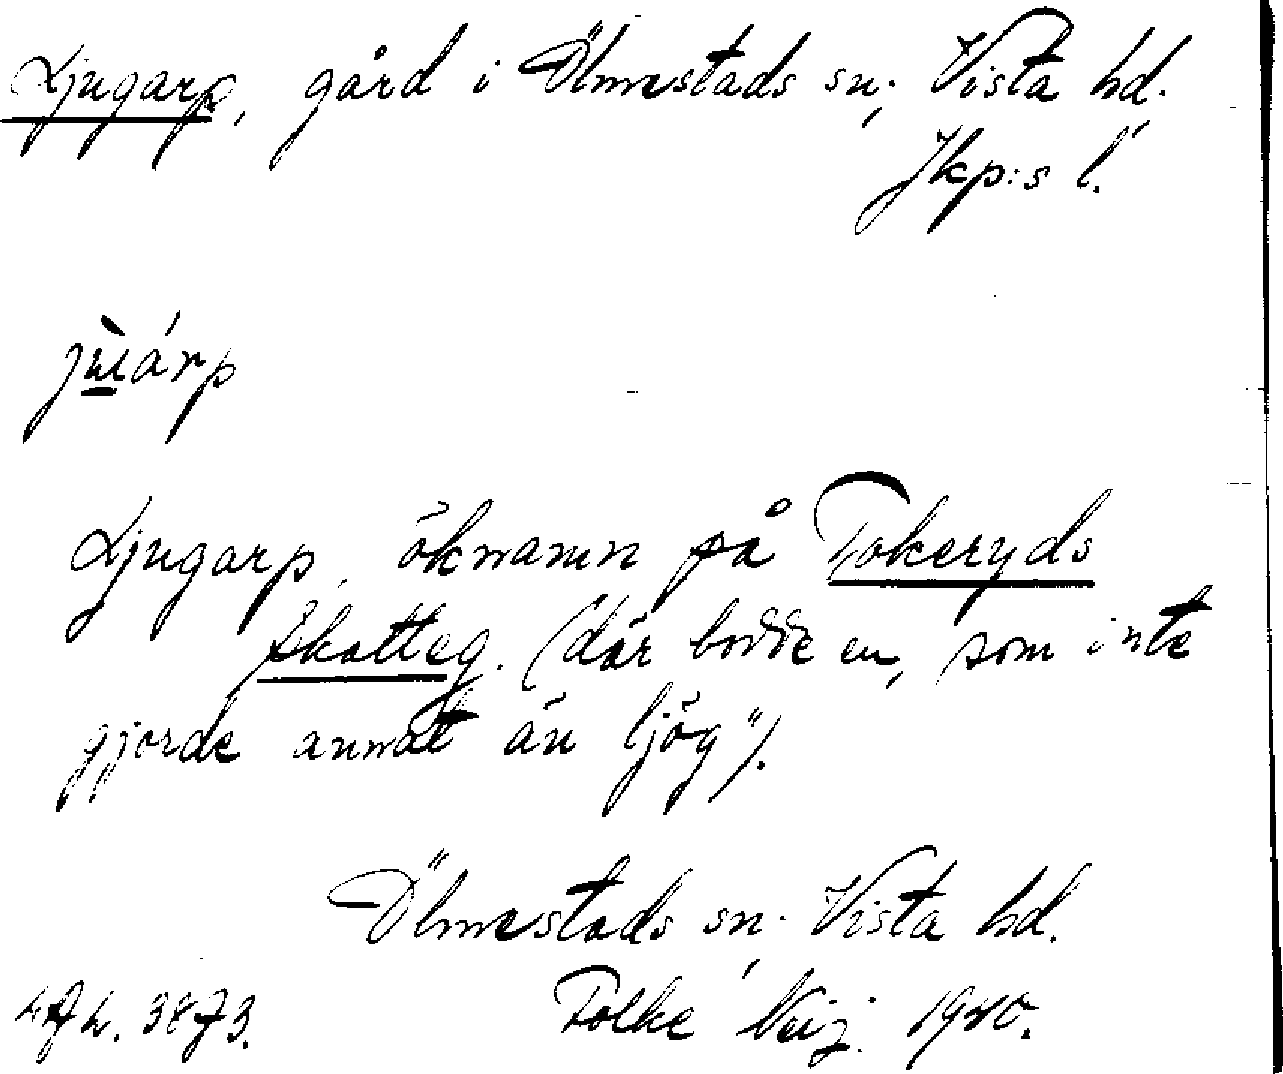 Ljugarp, gård i Ölmestads sn, Vista hd.
Jkp:s l.
Ljugarp, öknamn på Tokeryds
Skatteg. (där bodde en, som inte
gjorde annat än ljög").
Ölmestads sn. Vista hd.
3873. Folke 1940.